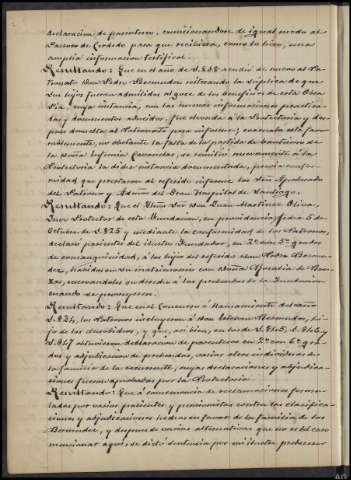 declaración de parentesco, comisionándose de igual modo al
Párroco de Cordido para que recibiera, como lo hizo, una
amplia información testifical.
Resultando: Que en el año de 1.828 acudió de nuevo al Pa-
tronato Don Pedro Bermudez reiterando la súplica de que
sus hijos fueran admitidos al goce de los beneficios de esta Obra
Pía, cuya instancia, con las mismas informaciones practica-
das y documentos aducidos, fué elevada á la Protectoría y des-
pues devuelta al Patronato para informe; evacuado este favo-
rablemente, no obstante la falta de la partida de bautismo de
la Doña Eufemia Cavarcos, se remitió nuevamente á la
Protectoría la dicha instancia documentada, previa confor-
midad que prestaron al referido informe los Sres. Apoderado
del Patrono y Admor. del Gran Hospital de Santiago.
Resultando: Que el Iltmo. Sor. Don Juan Martinez Oliva,
Juez Protector de esta Fundación, en providencia fecha 5 de
Octubre de 1.825 y mediante la conformidad de los Patronos,
declaró parientes del ilustre Fundador, en 2º con 5º grados
de consanguinidad, á los hijos del referido Don Pedro Bermu-
dez, habidos en su matrimonio con Doña
mandándoles acudir á las probendas de la Fundación
cuando se proveyesen.
Resultando: Que en el Concurso ó llamamiento del año
1.834, los Patronos incluyeron á Don Esteban Bermudez, hi-
jo de los susodichos, y que, así bien, en los de 1.845, 1.846 y
1.847 obtuvieron declaración de parentesco en 2º con 6º gra-
do y adjudicación de prebendas, varios otros individuos de
la familia de la recurrente, cuyas declaraciones y adjudica-
ciones fueron aprobadas por la Protectoría.
Resultando: Que á consecuencia de reclamaciones formu-
ladas por varios parientes y pensionistas contra las clasifica-
ciones y adjudicaciones hechas en favor de la familia de los
Bermudez, y despues de varias alternativas que no es del caso
mencionar aquí, se dictó sentencia por mi ilustre predecesor